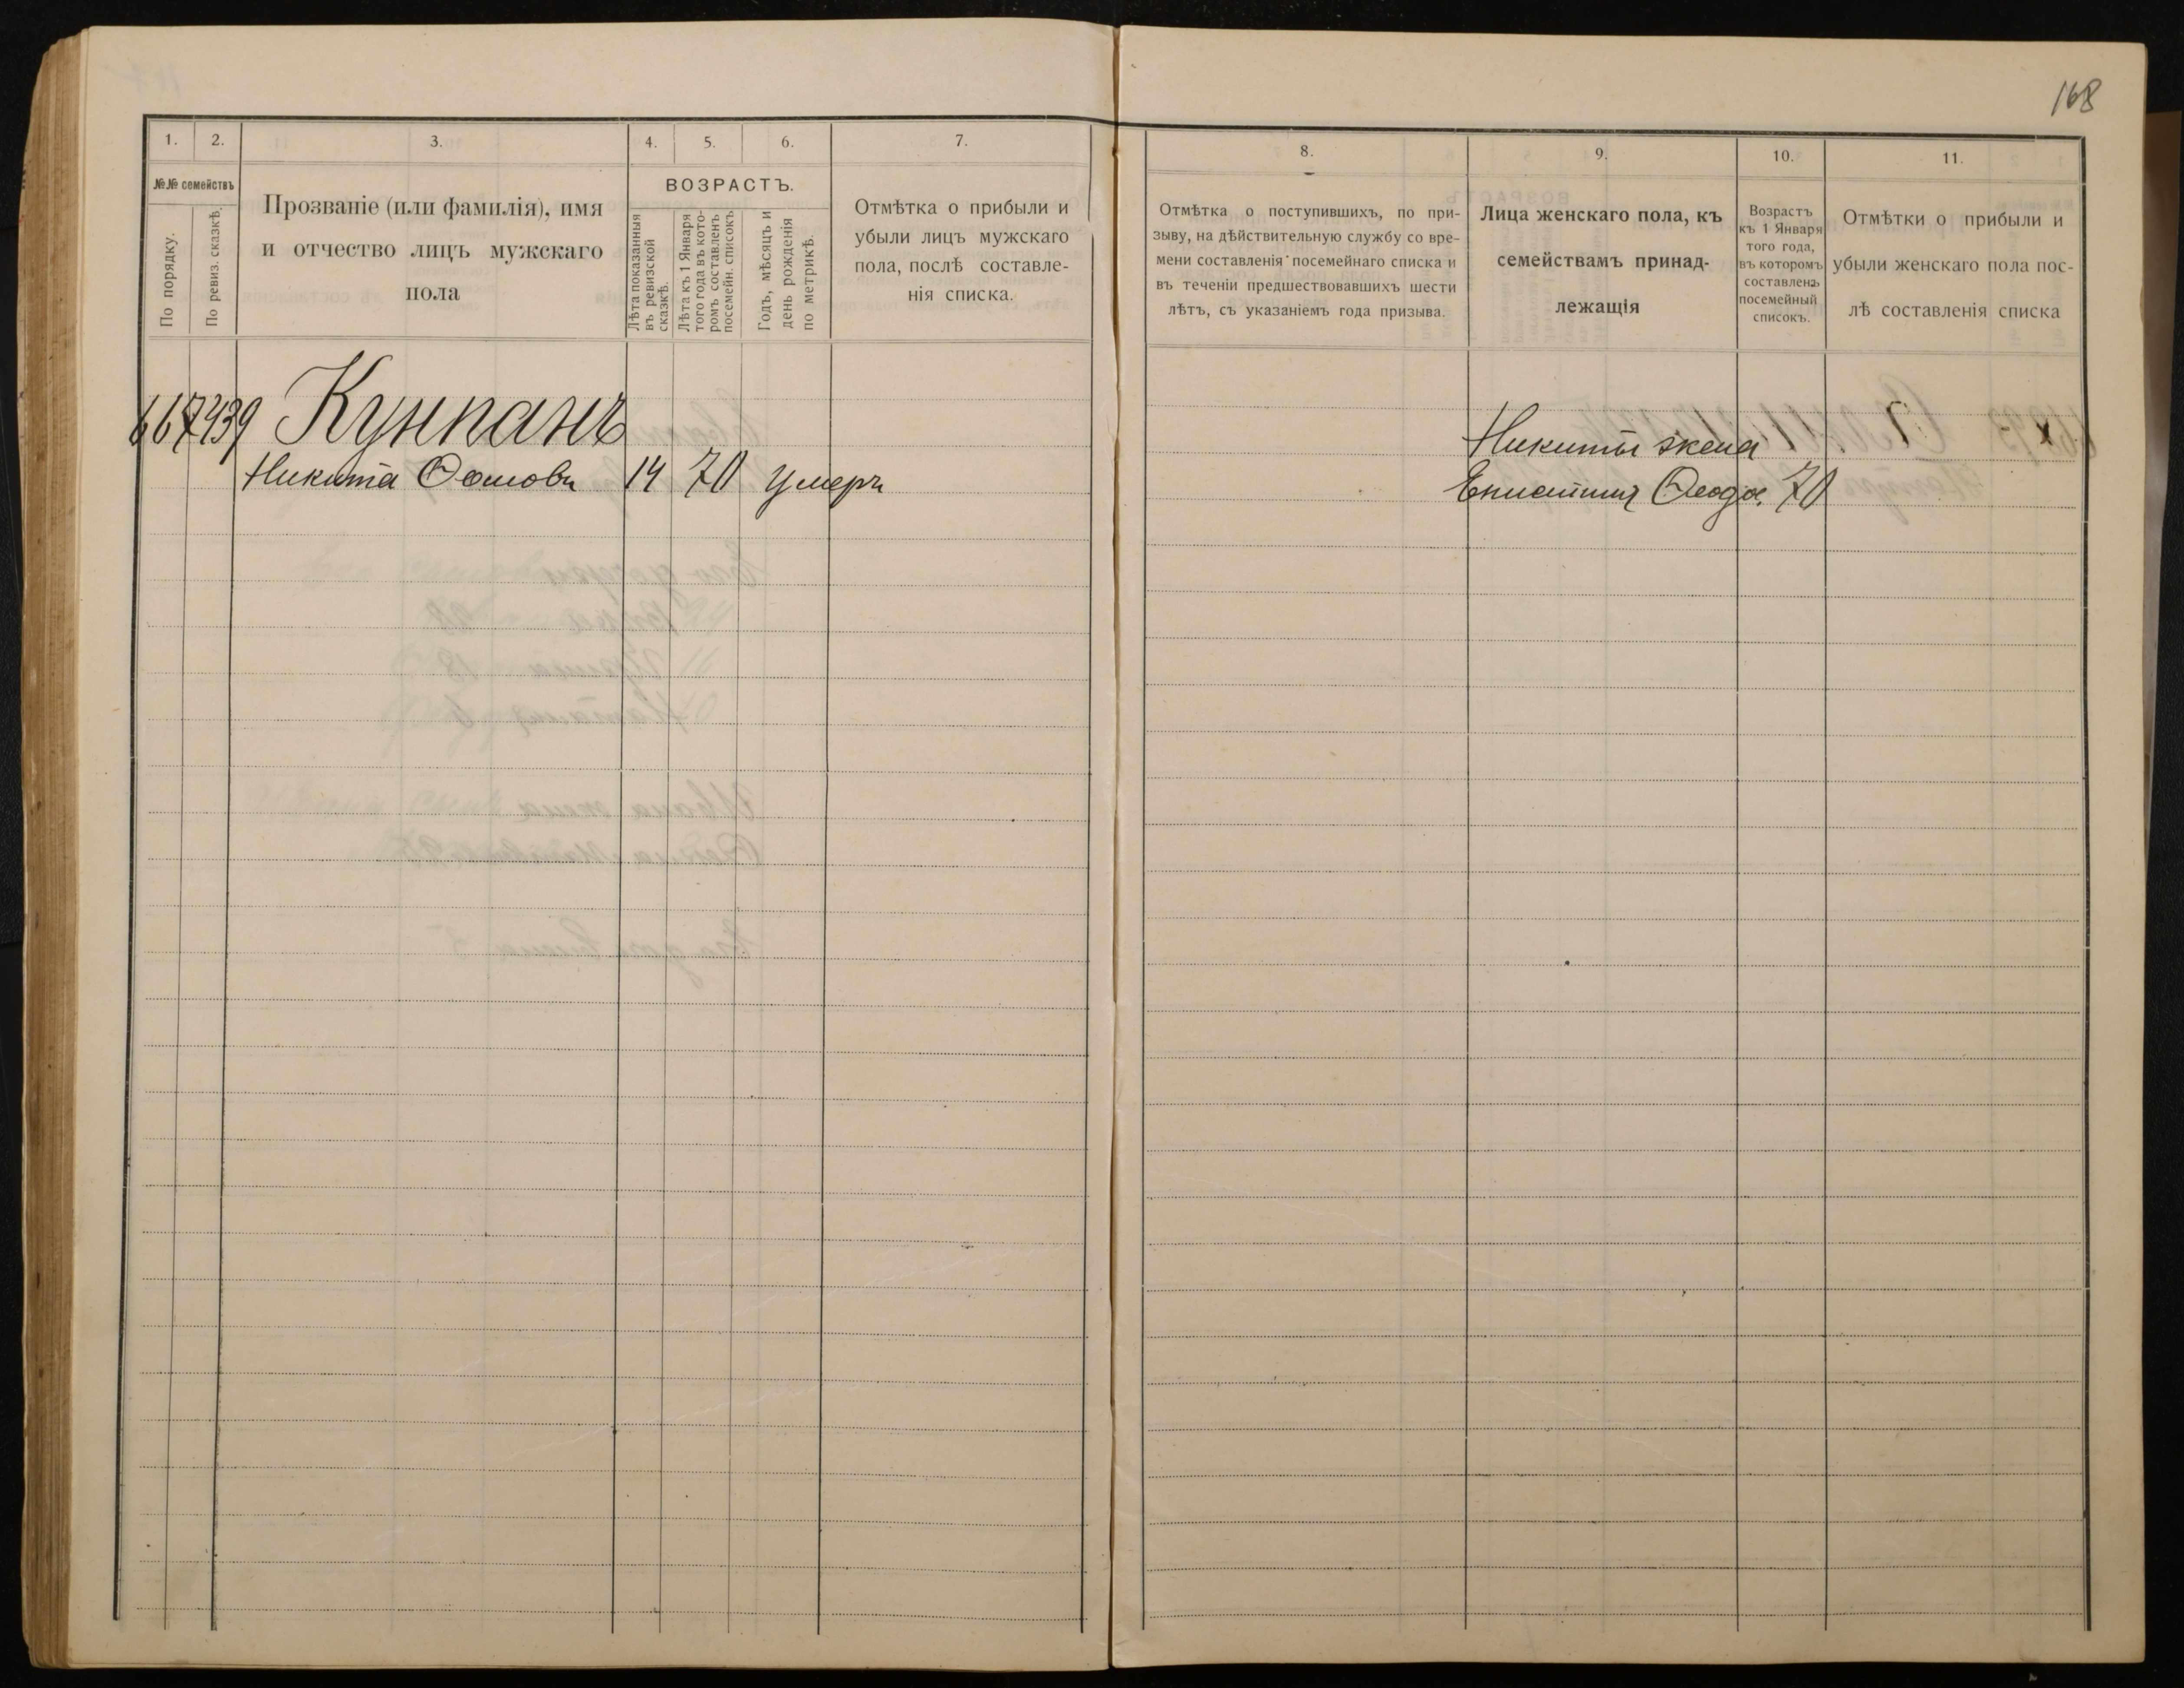 168
1. 2. 3. 4. 5. 6. 7.
№№ семействъ
По порядку.
По ревиз. сказкѣ.
Прозваніе (или фамилія), имя
и отчество лицъ мужскаго
пола
ВОЗРАСТЪ.
Лѣта показанныя
въ ревизской
сказкѣ.
Лѣта къ 1 Января
того года въ кото-
ромъ составленъ
посемейн. списокъ
Годъ, мѣсяцъ и
день рожденія
по метрикѣ.
Отмѣтка о прибыли и
убыли лицъ мужскаго
пола, послѣ составле-
нія списка.
667 439 Кунпанъ
Никита 14 70 умеръ
8. 9. 10. 11.
Отмѣтка о поступившихъ, по при-
зыву, на дѣйствительную службу со вре-
мени составленія посемейнаго списка и
въ теченіи предшествовавшихъ шести
лѣтъ, съ указаніемъ года призыва.
Лица женскаго пола, къ
семействамъ принад-
лежащія
Возрастъ
къ 1 Января
того года,
въ которомъ
составленъ
посемейный
списокъ.
Отмѣтки о прибыли и
убыли женскаго пола пос-
лѣ составленія списка
Никиты жена
Епистимія Ѳеодо. 70